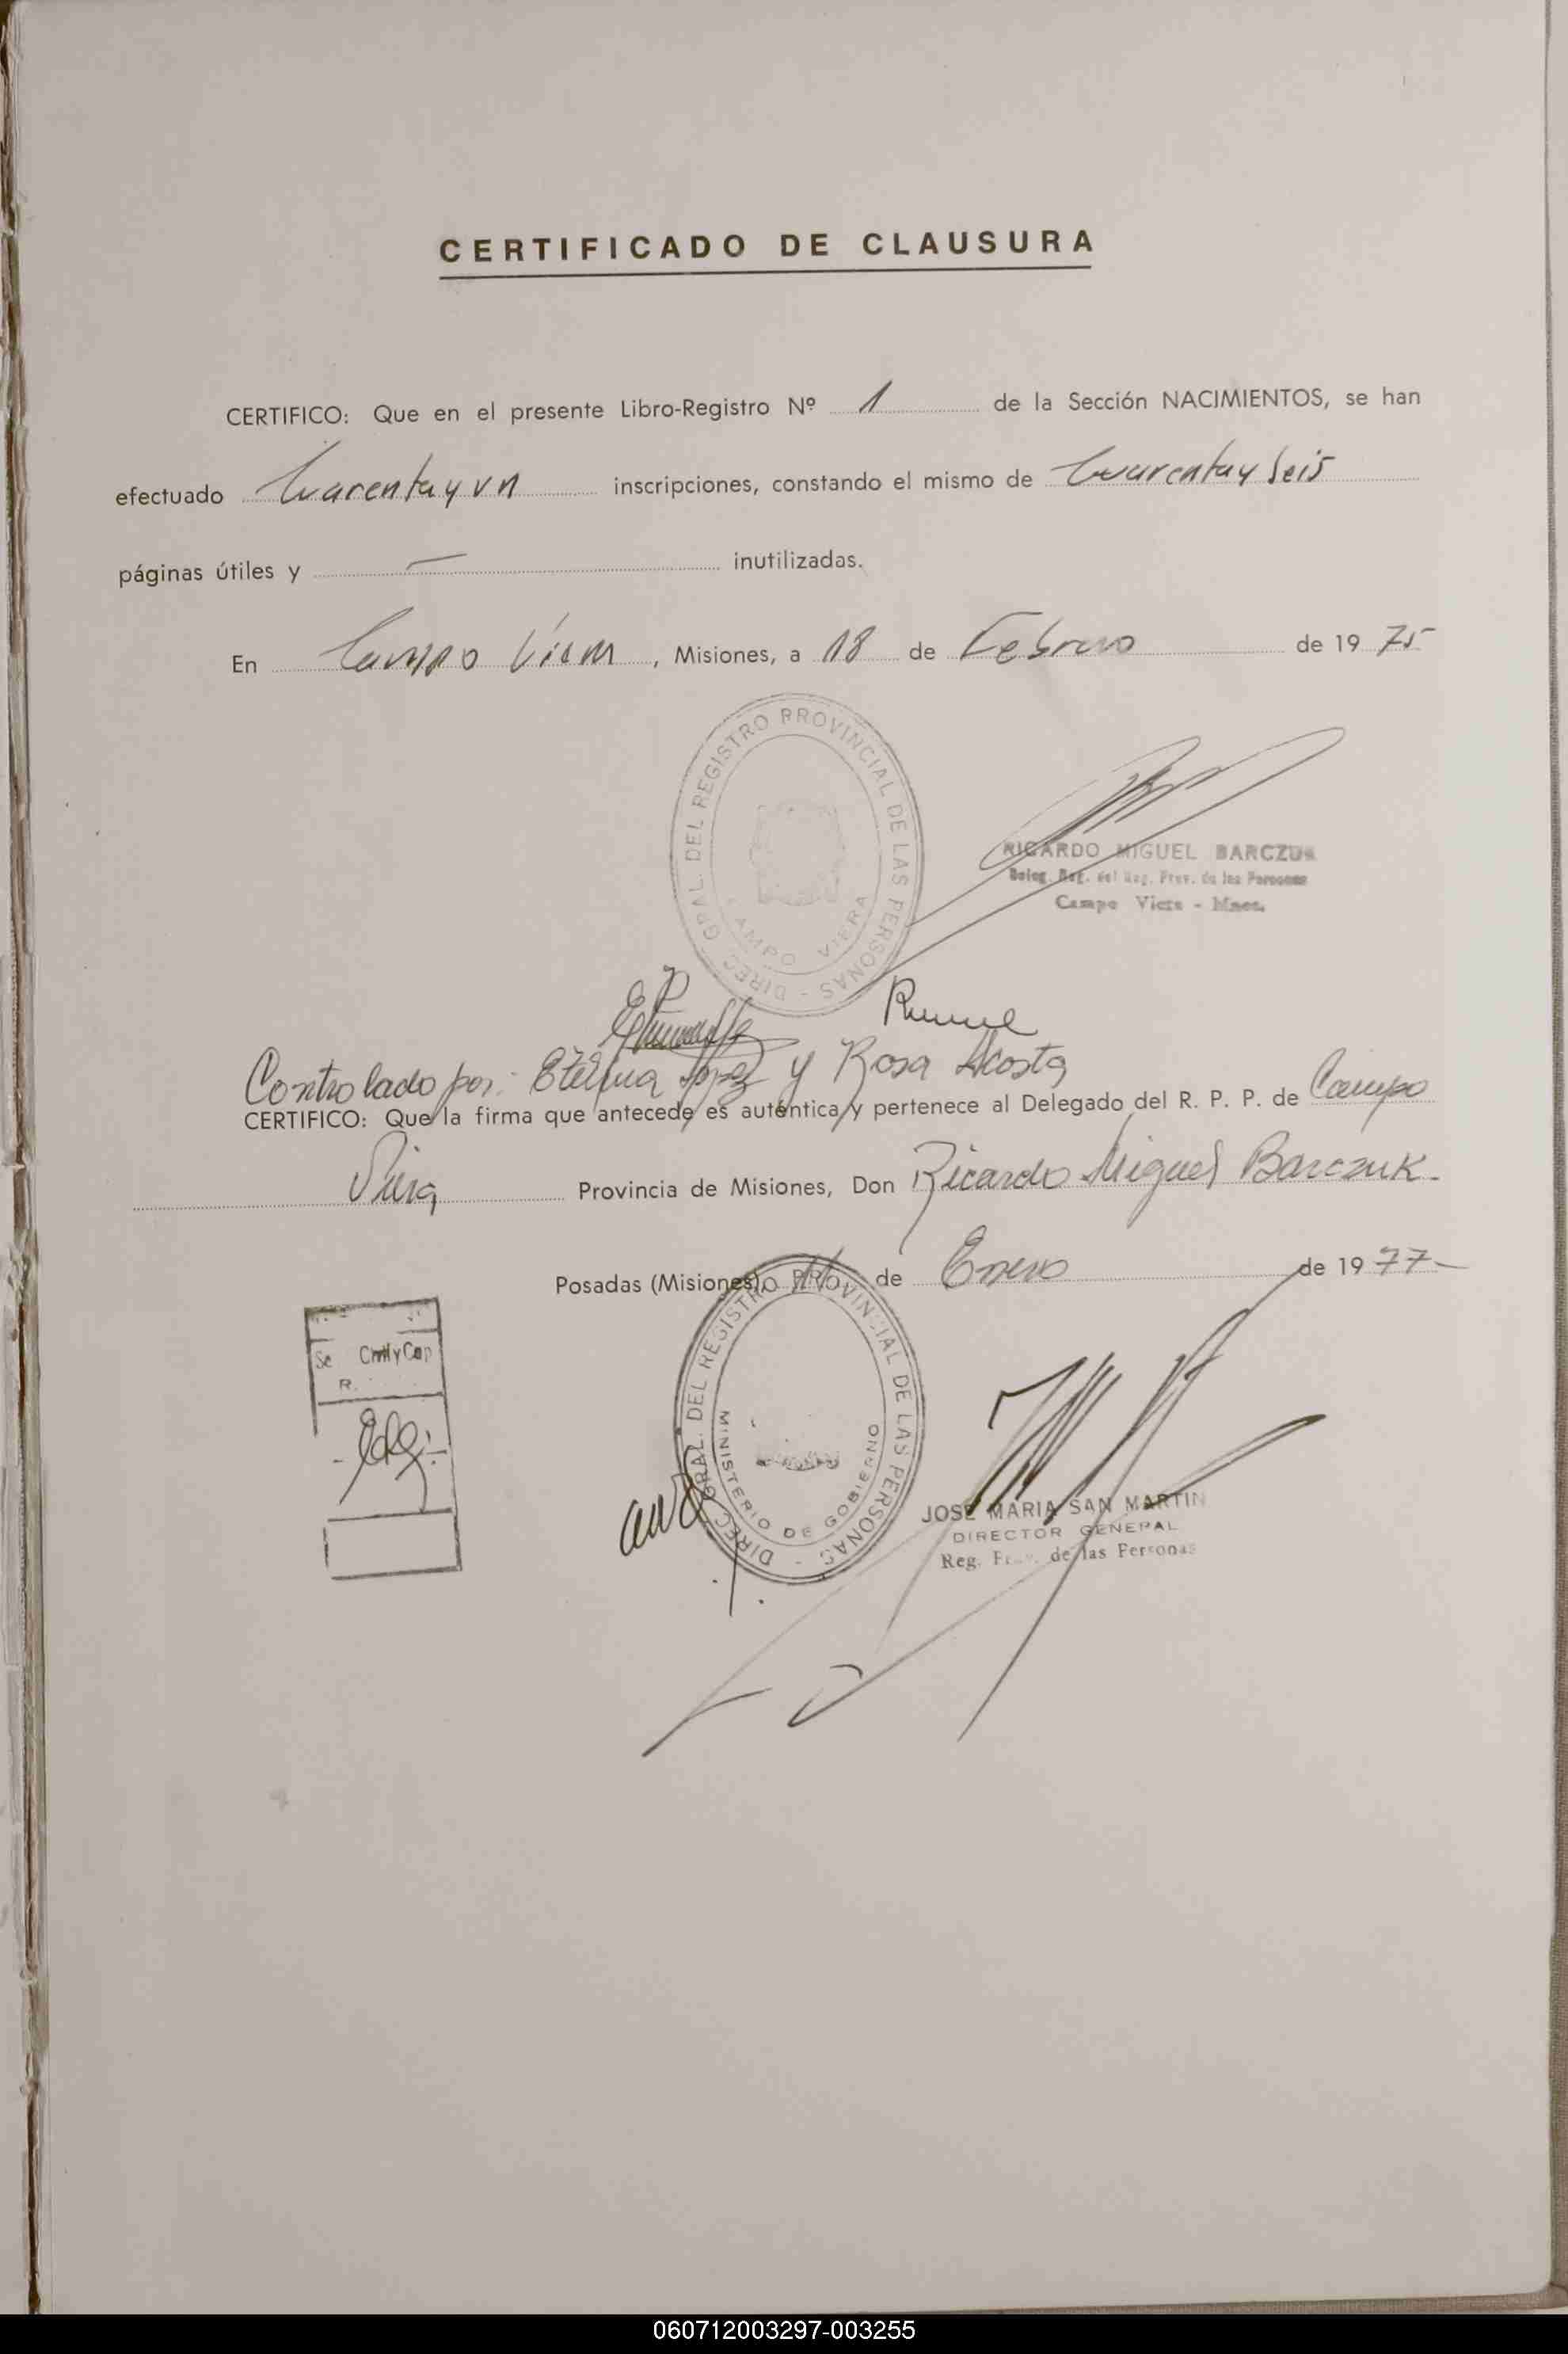 CERTIFICADO DE CLAUSURA
CERTIFICO: Que en el presente Libro-Registro Nº 1 de la Sección NACIMIENTOS, se han
efectuado Cuarentay un inscripciones, constando el mismo de Cuarentay Seis
páginas útiles y — inutilizadas.
En Campo Viera, Misiones, a 18 de Febrero de 19 75
DIREC. GRAL. DEL REGISTRO PROVINCIAL DE LAS PERSONAS -
CAMPO VIERA
RICARDO MIGUEL BARCZUK
Deleg. del Reg. Prov. de las Personas
Campo Viera - Mnes.
Controlado por: López y Rosa Acosta
CERTIFICO: Que la firma que antecede es auténtica y pertenece al Delegado del R. P. P. de Campo
Viera Provincia de Misiones, Don Ricardo Miguel Barczuk.
Posadas (Misiones), 11 de Enero de 19 77-
DIREC. GRAL. DEL REGISTRO PROVINCIAL DE LAS PERSONAS -
MINISTERIO DE GOBIERNO
Civil y Cap
R.
JOSE MARIA SAN MARTIN
DIRECTOR GENERAL
Reg. Prov. de las Personas
060712003297-003255